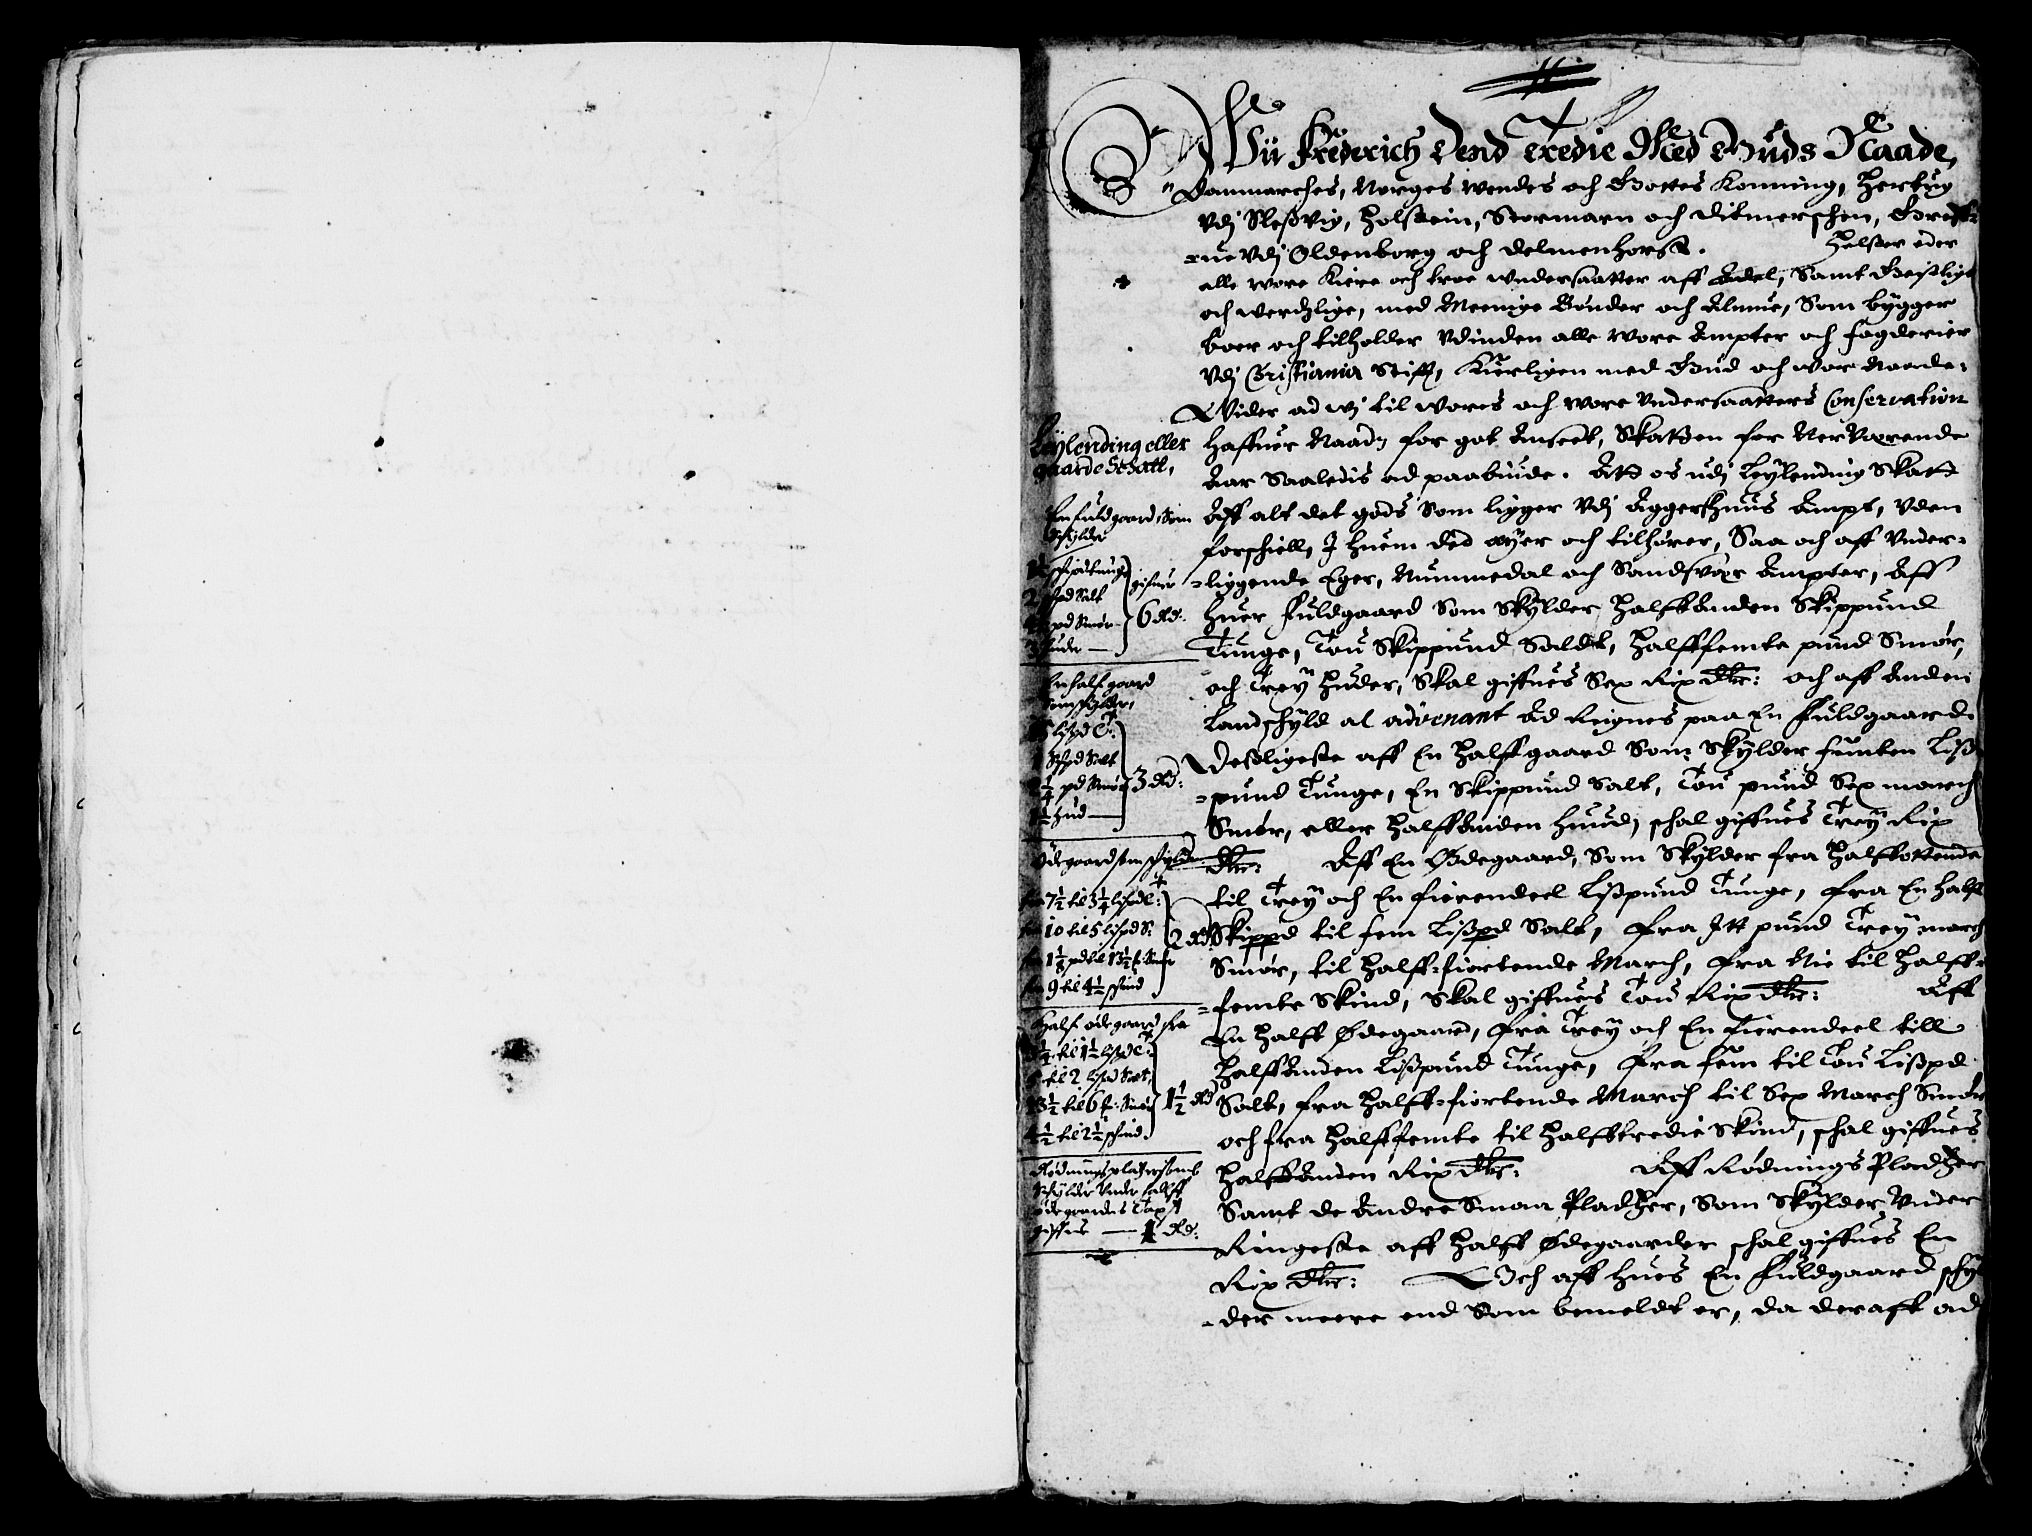 Wii Frederich Dend Tredie Med Guds Naade,
Danmarches, Norges Wendes och Gottes Konning, Hertug
Vdj Sleßvig, Holstein, Stormarn och Ditmerschen, Greff-
-ue Vdj Oldenborg och Delmenhorst. Helser eder
alle wore kiere och troe vndersaatter aff Adel, Samt Geistlige
och Werdslige, med Meenige Bønder och Almue, Som bygger
boer och tilholder Vdinden alle wore Ampter och fogderier
Vdj Christiania Stift, Kierligen med Gud och wor Naade.
Wider ad wj til wores och wore Vndersaatters Conservation
haffuer Naadh for got Anseet, Skatten for Nerværende
Aar Saaledis ad paabiude. Att os udj Leylending Skatt
Aff alt det gods Som ligger Vdj Aggershuus Ampt, Vden
forschiell, J huem ded eyer och tilhører, Saa och aff Vnder-
-liggende Eger, Nummedal och Sandsvær Ampter, Aff
huer fuldgaard Som Skylder halffanden Skippund
Tunge, Tou Skippund Saldt, halfffemte pund Smør,
och Trey huder, Skal giffues Sex Rix Dlr: och aff anden
Landschyld al advenant Ad Reignes paa En fuldgaard.
Desligeste aff En halff gaard Som Skylder femten Liß-
-pund Tunge, En Skippund Salt, Tou pund Sex march
Smør, eller halffanden huud, schal giffues Trey Rix
Dlr: Aff En Ødegaard, Som Skylder fra halffottende
til Trey och En fierendeel Lißpund Tunge, fra En halff
Skippd til fem Lißpd Salt, fra Itt pund Trey march
Smør, til halff-fiortende March, fra Nie til halff-
-femte Skind, Skal giffues Tou Rix Dlr: Aff
En halff Ødegaard, fra Trey och En fierendeel till
halffanden Lißpund Tunge, fra fem til Tou Lißpd
Salt, fra halff-fiortende March til Sex March Smør
och fra halfffemte til halfftredie Skind, schal giffues
halffanden Rix Dlr: Aff Rødnings Pladtzer
Samt de andre Smaa Pladtzer, Som Skylder Vnder
Ringeste aff halff Ødegaarder schal giffues En
Rix Dlr: Och aff hues En fuldgaard schyl
-der meere end Som bemeldt er, da deraff ad
Leylending eller
gaarde Schatt,
En fuldgaard, Som
schylder
1½ schipd tunge
2 schpd Salt
4½ pd Smør
3 huder
gifuer
6 Rd:
En half gaard
Som schylder,
15 lispd T:
1 Schpd Salt
2¼ pd Smør
1½ hud
3 Rd:
Ødegaard som schylder
fra 7½ til 3¼ lispd T:
fra 10 til 5 lispd S:
fra 1⅛ pd til 13½ : Smør
fra 9 til 4½ schind
2 Rd
Half ødegaard fra
3¼ til 1½ lispd T:
5 til 2 lispd Salt,
13½ til 6 : Smør
4½ til 2½ schind.
1½ Rd
Rødnings platzer samt
schylder Vnder halff
ødegaardes Taxt
giffues 1 Rd: